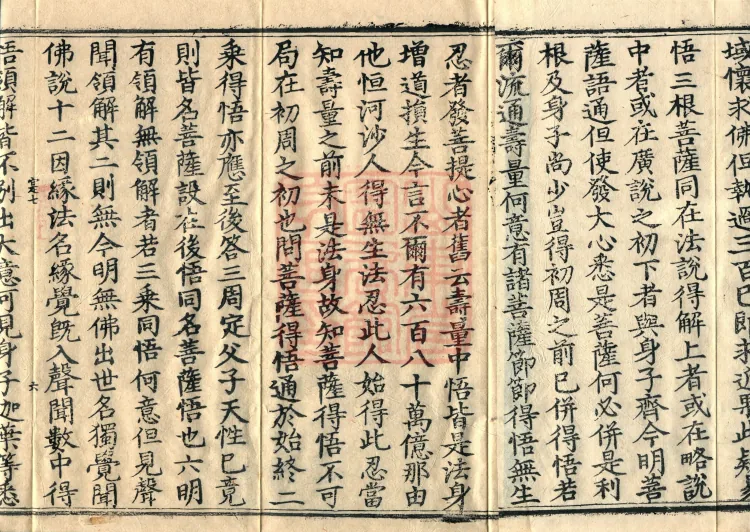 域懷求佛但執過三百已即求近果此疑
悟三根菩薩同在法說得解上者或在略說
中者或在廣說之初下者與身子齊今明菩
薩語通但使發大心悉是菩薩何必併是利
根及身子尚少豈得初周之前已併得悟若
爾流通壽量何意有諸菩薩節節得悟無生
忍者發菩提心者舊云壽量中悟皆是法身
增道損生今言不爾有六百八十萬億那由
他恒河沙人得無生法忍此人始得此忍當
知壽量之前未是法身故知菩薩得悟不可
局在初周之初也問菩薩得悟通於始終二
乘得悟亦應至後答三周定父子天性已竟
則皆名菩薩設在後悟同名菩薩悟也六明
有領解無領解者若三乘同悟何意但見聲
聞領解其二則無今明無佛出世名獨覺聞
佛說十二因緣法名緣覺既入聲聞數中得
六
悟領解皆不別出大意可見身子加葉等悉